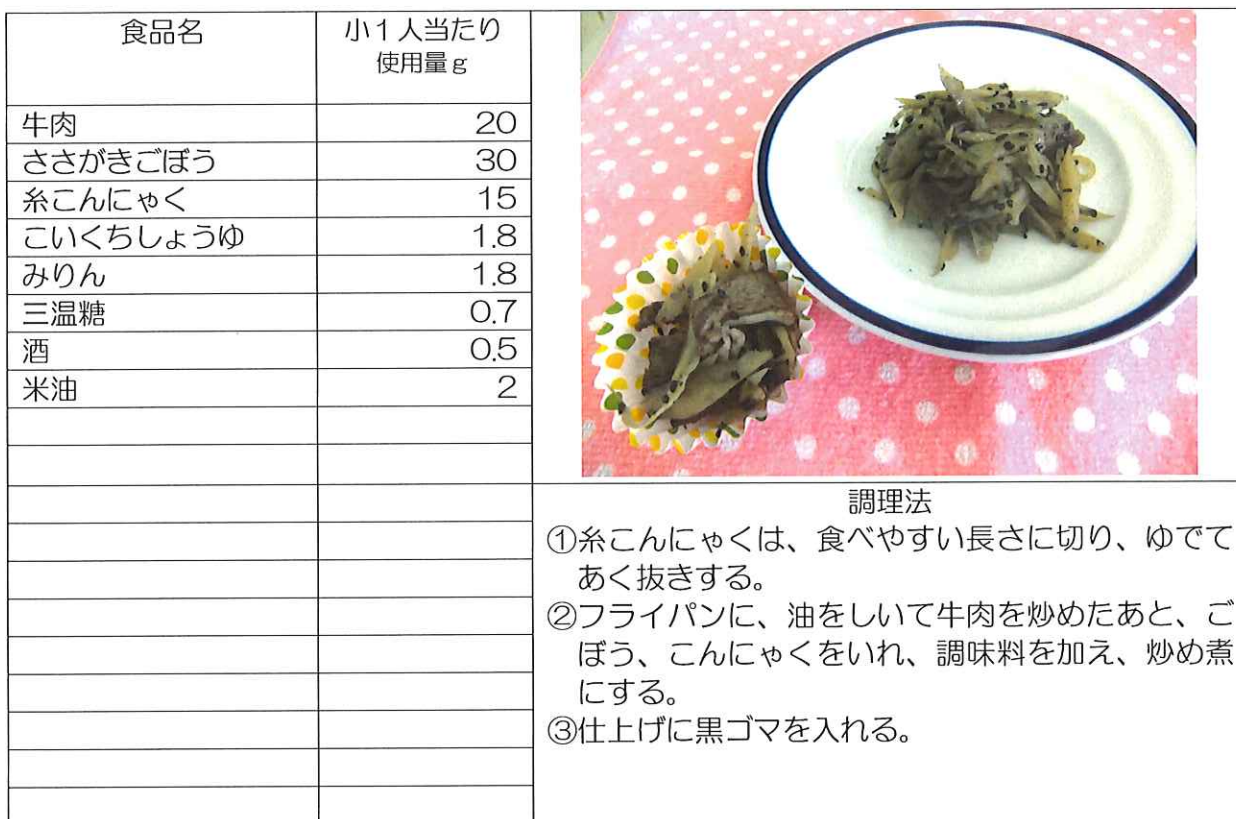 食品名
小1人当たり
使用量g
牛肉 20
ささがきごぼう 30
糸こんにゃく 15
こいくちしょうゆ 1.8
みりん 1.8
三温糖 0.7
酒 0.5
米油 2
調理法
①糸こんにゃくは、食べやすい長さに切り、ゆでて
あく抜きする。
②フライパンに、油をしいて牛肉を炒めたあと、ご
ぼう、こんにゃくをいれ、調味料を加え、炒め煮
にする。
③仕上げに黒ゴマを入れる。